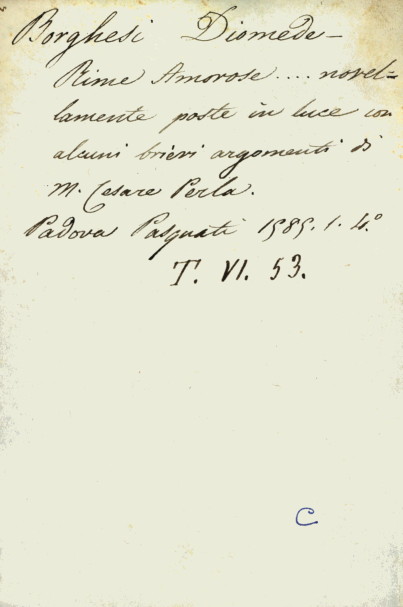 Borghesi Diomede-
Rime Amorose .... novel=
lamente poste in luce con
alcuni brievi argomenti di
M. Cesare Perla.
Padova Pasquati 1585. 1. 4.º
T. VI. 53.
C